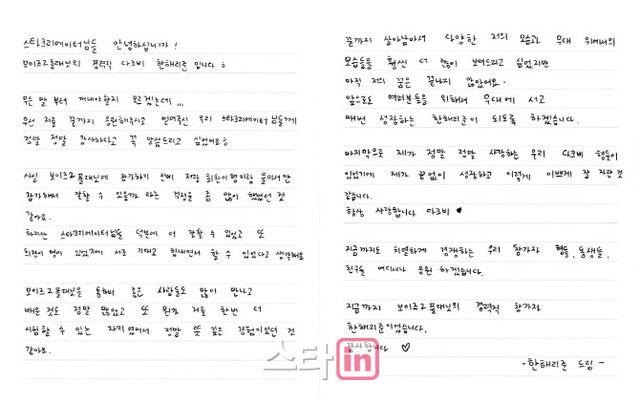 스타크리에이터님들 안녕하십니까!
보이즈2플래닛의 경력직 다크비 한해리준입니다 :)
무슨 말 부터 꺼내야할지 모르겠는데...
우선 저를 끝까지 응원해주시고 믿어주신 우리 스타크리에이터님들께
정말 정말 감사하다고 꼭 말씀드리고 싶었어요 :)
사실 보이즈2플래닛에 참가하기 전에 저랑 희찬이형이랑 둘이서만
참가해서 잘할 수 있을까 라는 걱정을 좀 많이 했었던 것
같아요.
하지만 스타크리에이터님들 덕분에 더 잘할 수 있었고 또
희찬이 형이 있었기에 서로 기대고 힘내면서 할 수 있었다고 생각해요
보이즈2플래닛을 통해서 좋은 사람들도 많이 만나고
배운 것도 정말 많았고 또 뭔가 저를 한번 더
시험할 수 있는 자리였어서 정말 뜻 깊은 경험이었던 것
같아요.
끝까지 살아남아서 다양한 저의 모습과 무대 위에서의
모습들을 훨씬 더 많이 보여드리고 싶었지만
아직 저의 꿈은 끝나지 않았어요.
앞으로도 여러분들을 위해서 무대에 서고
매번 성장하는 한해리준이 되도록 하겠습니다.
마지막으로 제가 정말 정말 사랑하는 우리 다크비 형들이
있었기에 제가 끝없이 성장하고 이렇게 이쁘게 잘 자란 것
같습니다.
항상 사랑합니다 다크비 ♥
지금까지도 치열하게 경쟁하는 우리 참가자 형들, 동생들,
친구들 어디서나 응원 하겠습니다.
지금까지 보이즈2플래닛의 경력직 참가자
한해리준이었습니다.
감사합니다 ♡
-한해리준 드림-
스타in